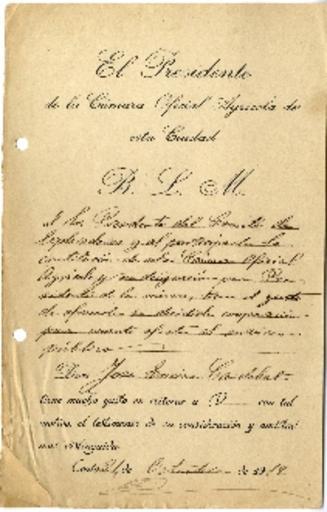 El Presidente
de la Cámara Oficial Agrícola de
esta Ciudad
B. L. M.
al Sor. Presidente del
y al participarle la
constitución de esta Cámara Oficial
Agrícola y su designación para Pre-
sidente de la misma, tiene el gusto
de ofrecerle su decidida cooperación
para cuanto afecte al servicio
público
Don José
tiene mucho gusto en reiterar a V. con tal
motivo, el testimonio de su consideración y amistad
mas distinguida.
de de 191